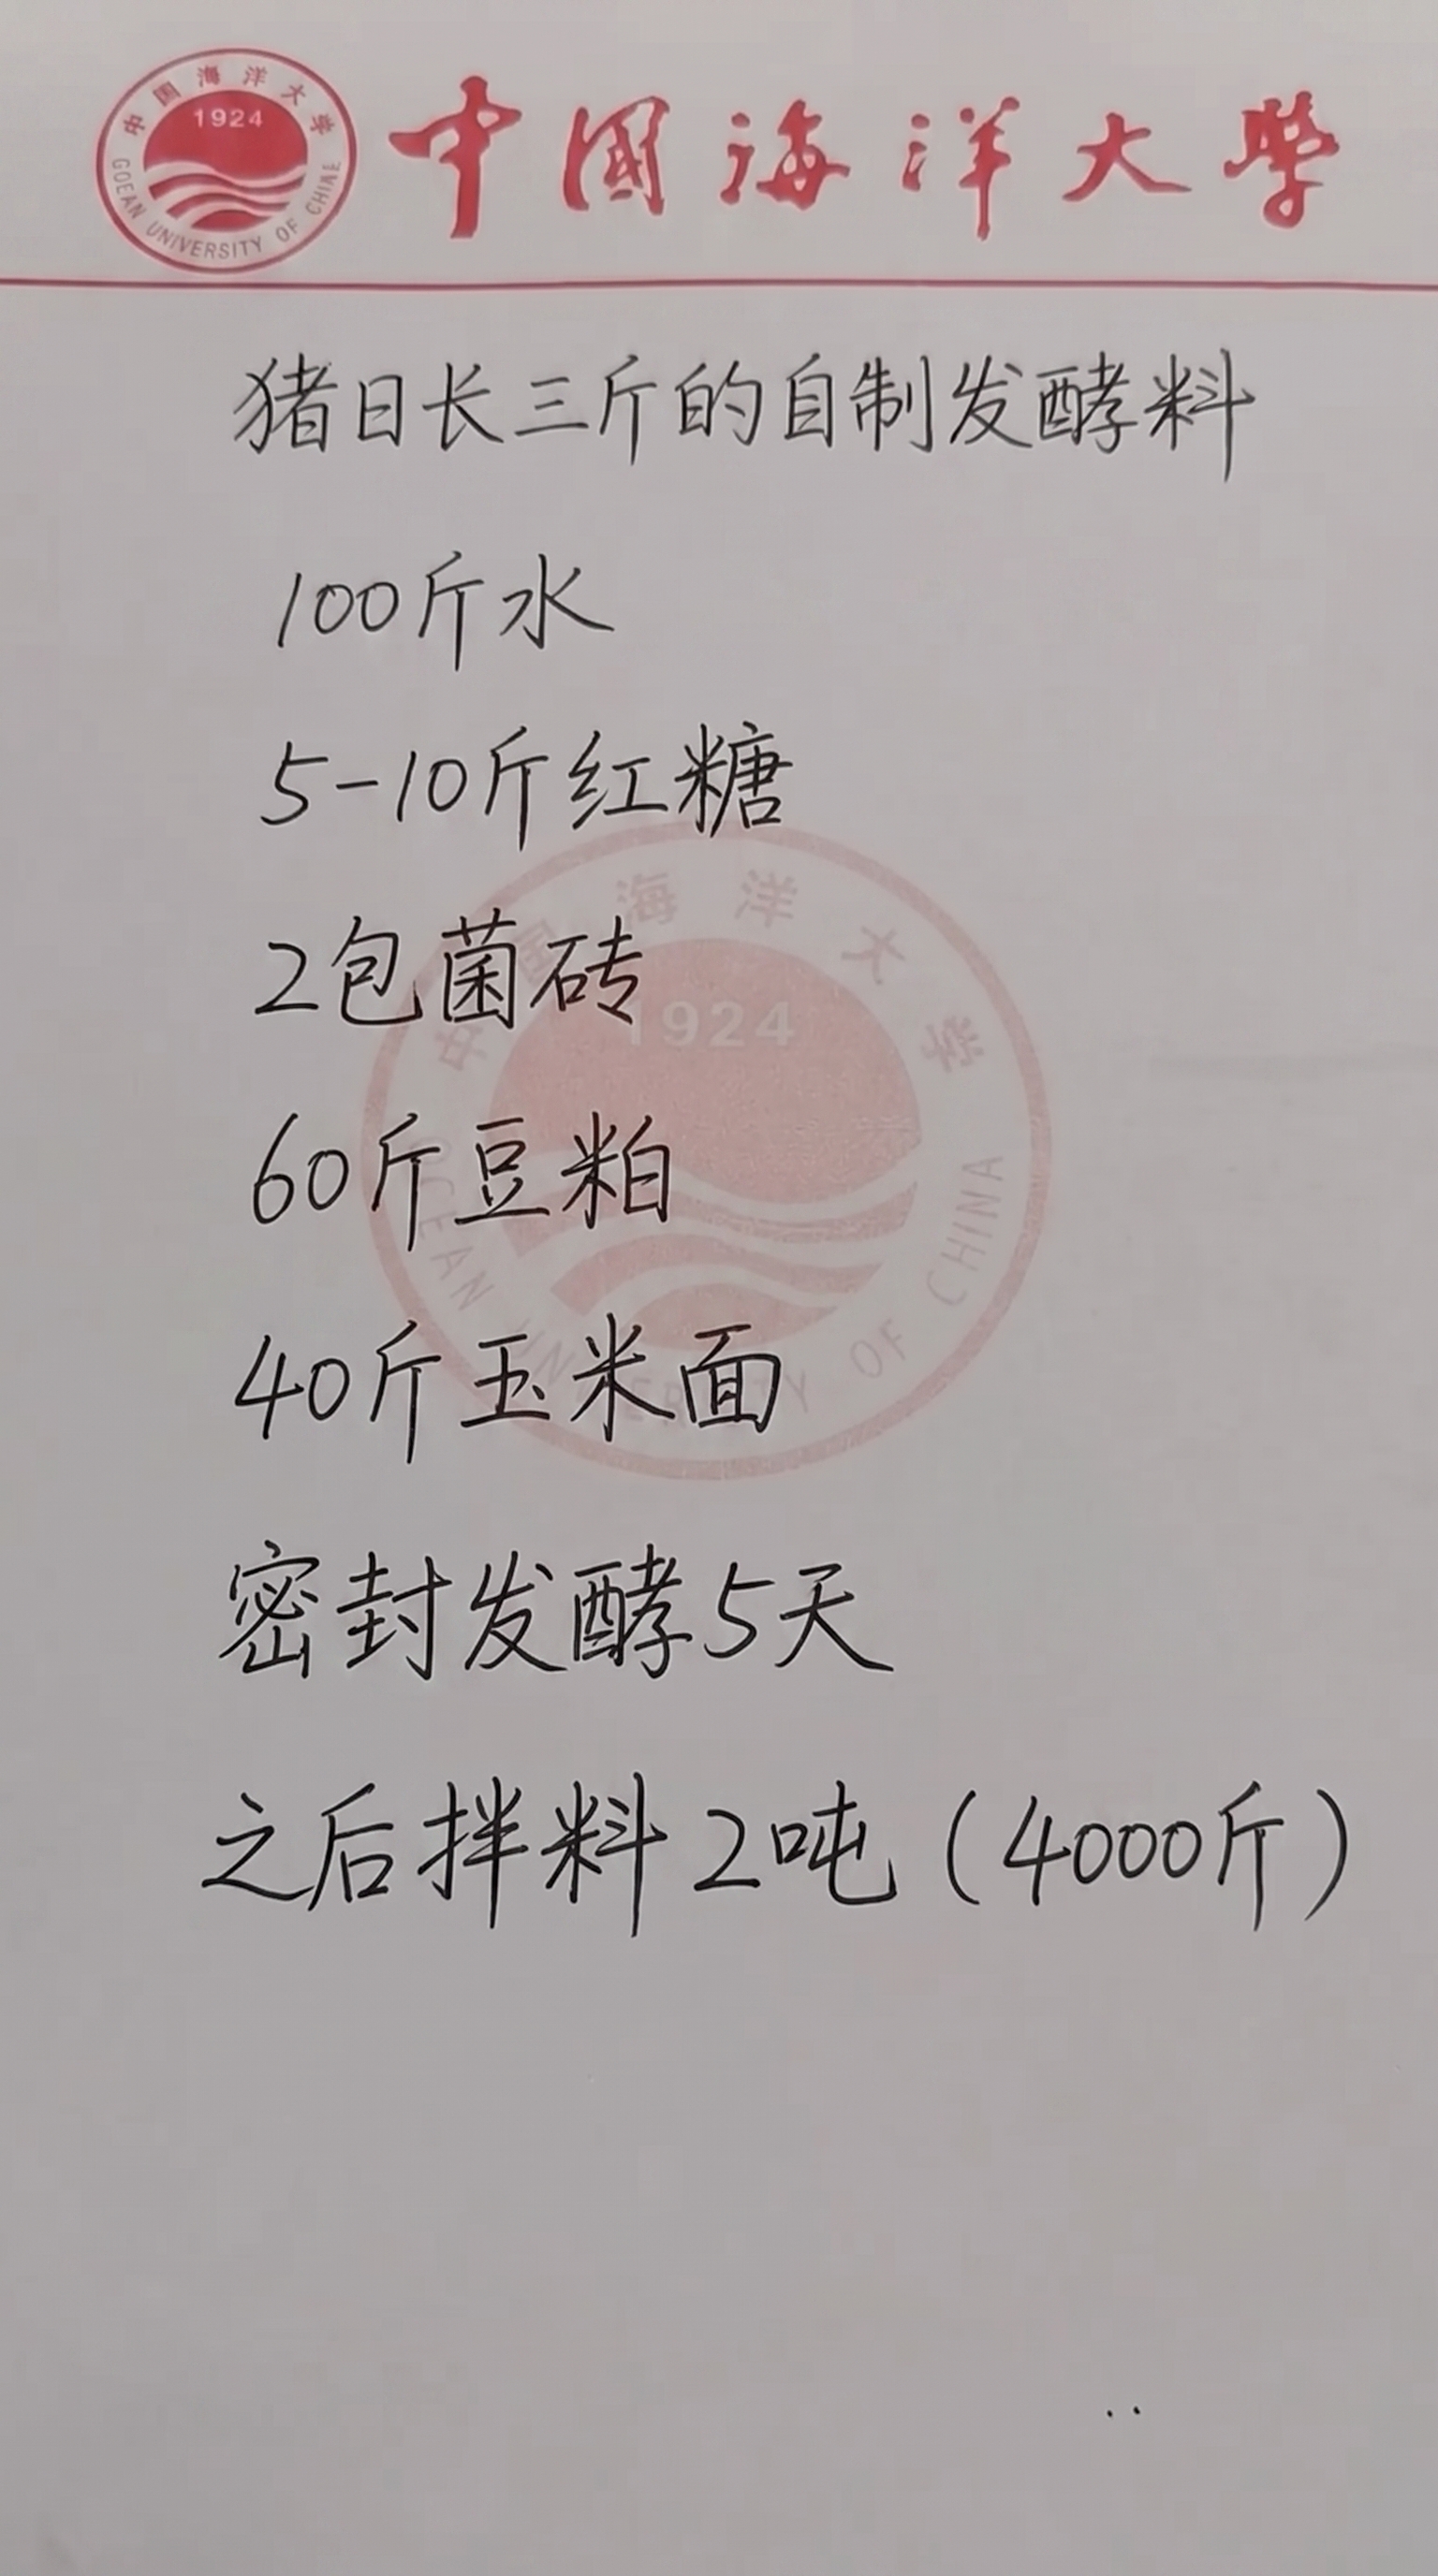 中国海洋大学
1924
GOEAN UNIVERSITY OF CHINE
中國海洋大學
猪日长三斤的自制发酵料
100斤水
5-10斤红糖
2包菌砖
60斤豆粕
40斤玉米面
密封发酵5天
之后拌料2吨(4000斤)
中国海洋大学
1924
OCEAN UNIVERSITY OF CHINA